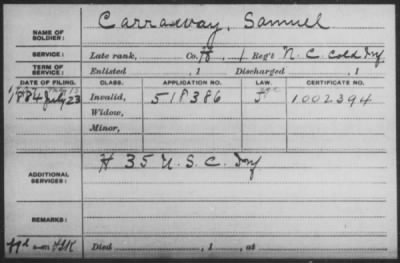 NAME OF SOLDIER: Carraway, Samuel
SERVICE: Late rank, Co. H, 1 Reg't N.C. Cold Inf
TERM OF SERVICE: Enlisted , 1 Discharged , 1
DATE OF FILING. CLASS. APPLICATION NO. LAW. CERTIFICATE NO.
1884 July 23 Invalid, 518386 1002394
Widow,
Minor,
ADDITIONAL SERVICES: H 35 U.S.C. Inf
REMARKS:
Died , 1 , at